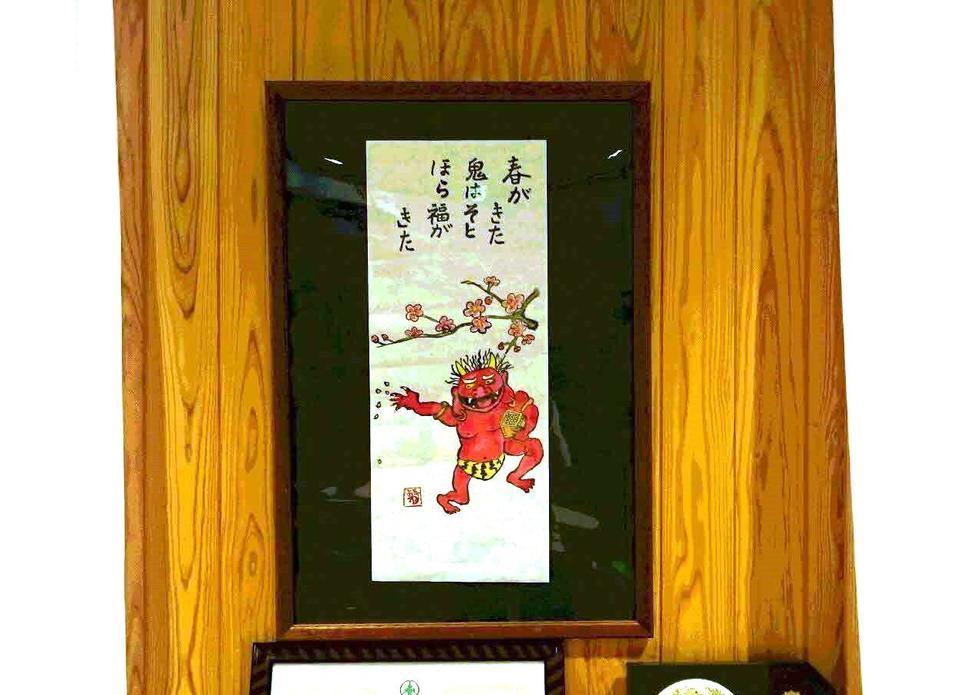 春が
きた
鬼はそと
ほら福が
きた
福